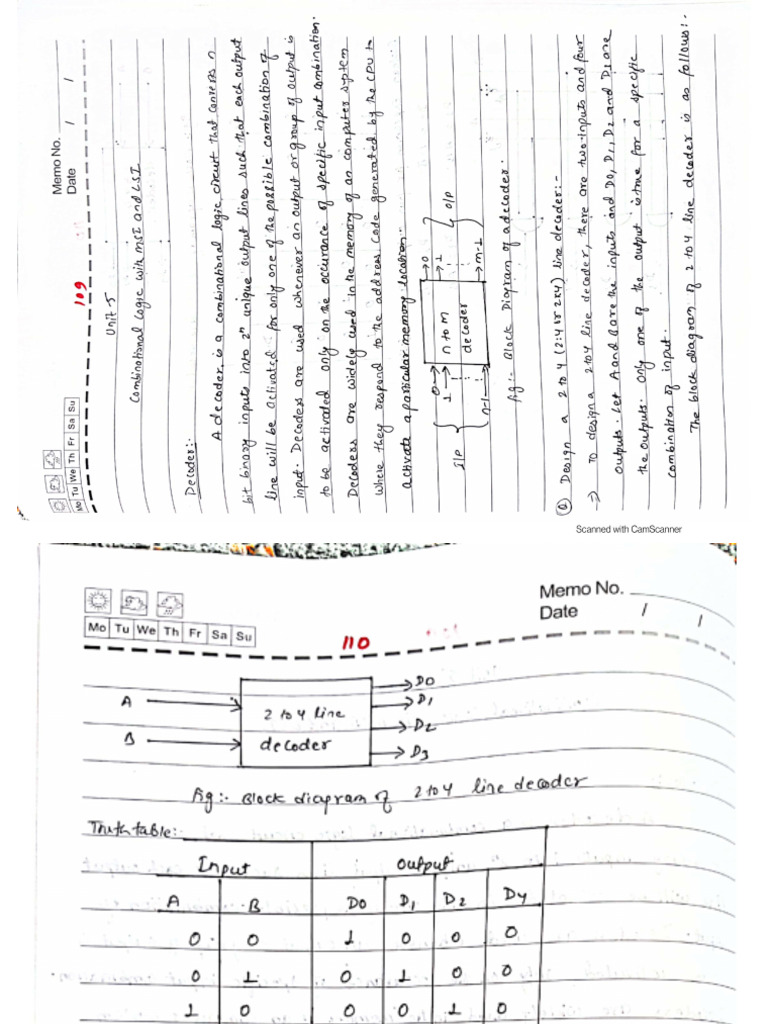 Memo No.
Date / /
Mo Tu We Th Fr Sa Su
109
Unit-5
Combinational Logic with MSI and LSI
Decoder:-
A decoder is a combinational logic circuit that converts n
bit binary inputs into 2ⁿ unique output lines such that each output
line will be activated for only one of the possible combination of
input. Decoders are used whenever an output or group of output is
to be activated only on the occurance of specific input combination.
Decoders are widely used in the memory of an computer system
where they respond to the address code generated by the CPU to
activate a particular memory location.
I/P
0
1
n-1
n to m
decoder
0
1
m-1
O/P
fig:- Block Diagram of a decoder.
Q Design a 2 to 4 (2:4 or 2x4) line decoder:-
=> To design a 2 to 4 line decoder, there are two inputs and four
outputs. Let A and B are the inputs and D0, D1, D2 and D3 are
the outputs. Only one of the output is true for a specific
combination of input.
The block diagram of 2 to 4 line decoder is as follows:-
Scanned with CamScanner
Memo No.
Date / /
Mo Tu We Th Fr Sa Su
110
A
B
2 to 4 line
decoder
D0
D1
D2
D3
fig:- Block diagram of 2 to 4 line decoder
Truth table:-
Input Output
A B D0 D1 D2 D4
0 0 1 0 0 0
0 1 0 1 0 0
1 0 0 0 1 0